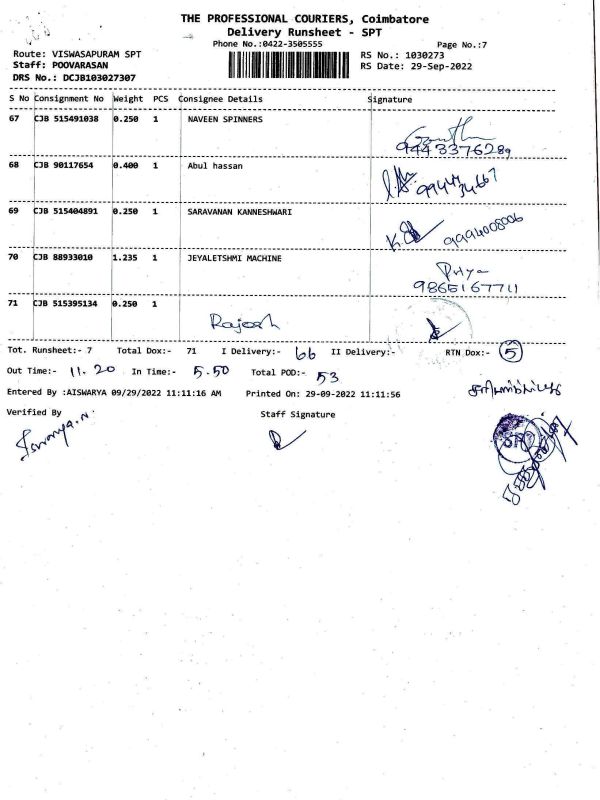 THE PROFESSIONAL COURIERS, Coimbatore
Delivery Runsheet - SPT
Phone No.:0422-3505555 Page No.:7
Route: VISWASAPURAM SPT RS No.: 1030273
Staff: POOVARASAN RS Date: 29-Sep-2022
DRS No.: DCJB103027307
S No Consignment No Weight PCS Consignee Details Signature
67 CJB 515491038 0.250 1 NAVEEN SPINNERS
9443376289
68 CJB 90117654 0.400 1 Abul hassan
69 CJB 515404891 0.250 1 SARAVANAN KANNESHWARI
9994008006
70 CJB 88933010 1.235 1 JEYALETSHMI MACHINE Priya
9865167711
71 CJB 515395134 0.250 1
Rajesh
Tot. Runsheet:- 7 Total Dox:- 71 I Delivery:- 66 II Delivery:- RTN Dox:- 5
Out Time:- 11.20 In Time:- 5.50 Total POD:- 53
Entered By :AISWARYA 09/29/2022 11:11:16 AM Printed On: 29-09-2022 11:11:56
Verified By Staff Signature